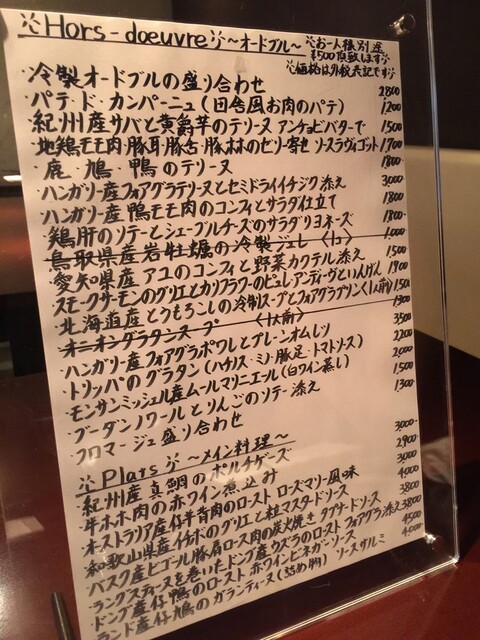 ※Hors-doeuvre※～オードブル～ ※お一人様別途
¥500頂戴します※
※価格は外税表記です※
・冷製オードブルの盛り合わせ 2800
・パテ・ド・カンパーニュ(田舎風お肉のパテ) 1,200
・紀州産サバと黄爵芋のテリーヌ アンチョビバターで 1500
・地鶏モモ肉・豚耳・豚舌・豚ホホのゼリー寄せ ソースラヴィゴット 1,700
・鹿・鳩・鴨のテリーヌ 1800
・ハンガリー産フォアグラテリーヌとセミドライイチジク添え 3,000
・ハンガリー産鴨モモ肉のコンフィとサラダ仕立て 1800
・鶏肝のソテーとシェーブルチーズのサラダリヨネーズ 1800-
・鳥取県産岩牡蠣の冷製ジュレ 1,000
・愛知県産アユのコンフィと野菜カクテル添え 1,500
・スモークサーモンのグリエとカリフラワーのピュレ アンディーヴといんげん 1900
・北海道産とうもろこしの冷製スープとフォアグラプリン(1人前) 150
・オニオングラタンスープ (1人前) 1300
・ハンガリー産フォアグラポワレとプレーンオムレツ 3500
・トリッパのグラタン(ハチノス・ミノ・豚足・トマトソース) 2200
・モンサンミッシェル産ムールマリニエール(白ワイン蒸し) 2,000
・ブーダンノワールとりんごのソテー添え 1,500
・フロマージュ盛り合わせ 1,300
※Plats※～メイン料理～
・紀州産真鯛のポルチゲーズ 3,000-
・牛ホホ肉の赤ワイン煮込み 2,900
・オーストラリア産仔羊背肉のロースト ローズマリー風味 3,000
・和歌山県産イチボのグリエと粒マスタードソース 4,000
・バスク産ビゴール豚肩ロース肉の炭火焼き タプナードソース 3800
・ラングスティーヌを巻いたドンブ産ウズラのロースト フォアグラ添え 3800
・ドンブ産仔鴨のロースト 赤ワインビネガーソース 4500
・ランド産仔鳩のガランティーヌ(詰め物) ソースサルミ 4,000